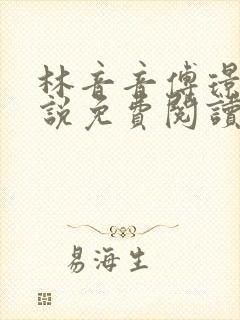 林音音傅璟
說免費閱讀
易海生